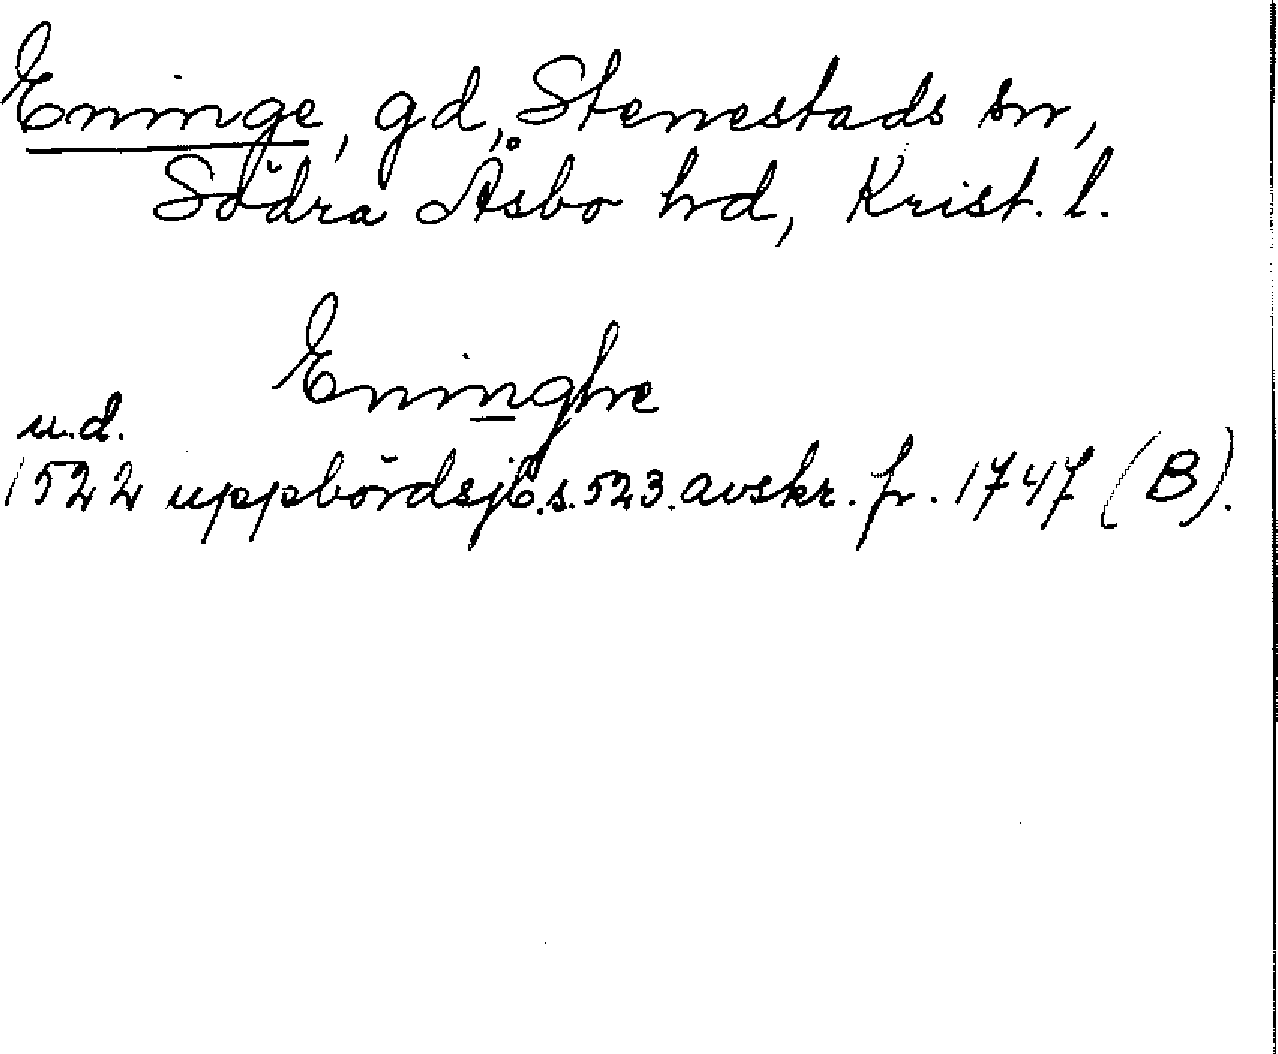 Eninge, gd, Stenestads sn,
Södra Åsbo hd, Krist. l.
Eninghe
u.d.
1522 uppbördsjb. s. 523. avskr. fr. 1747 (B).